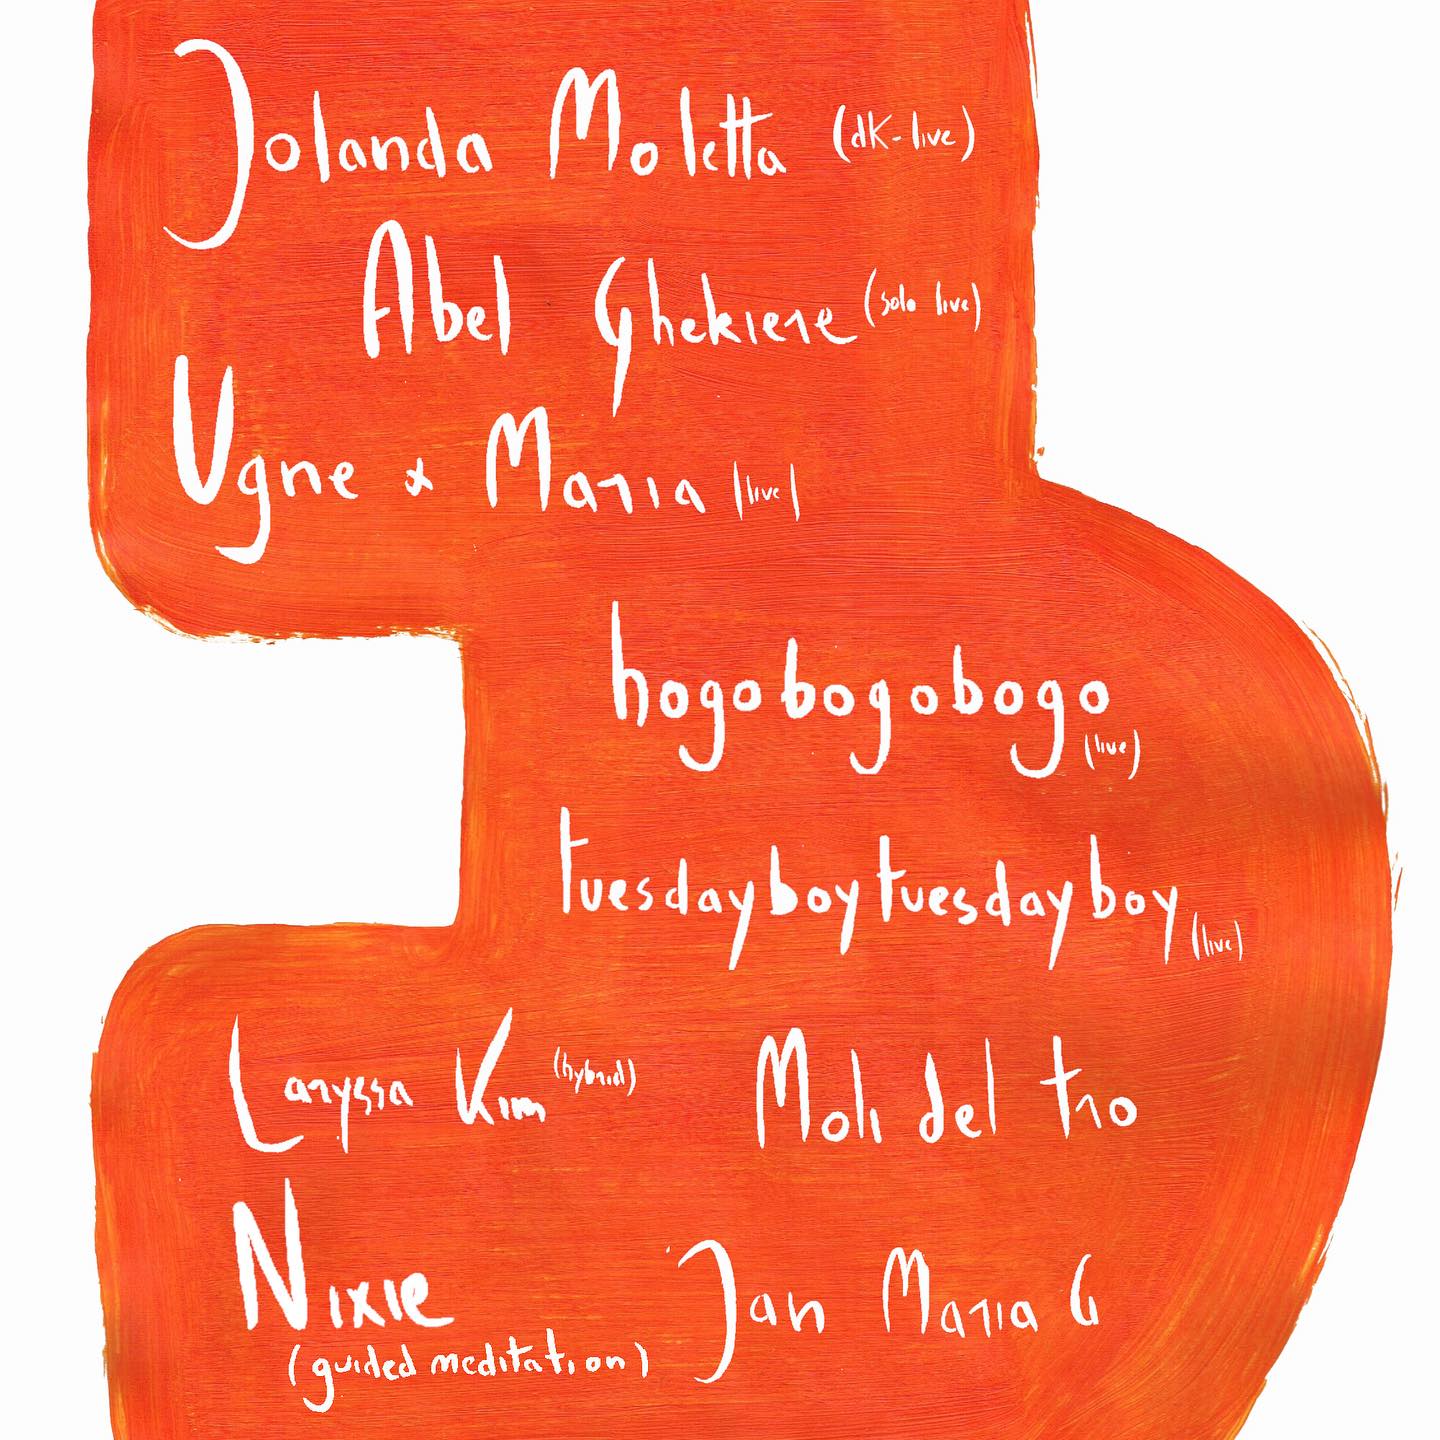 Jolanda Moletta (dK-live)
Abel Ghekiere (solo live)
Ugne & Maria (live)
hogobogobogo
(live)
tuesdayboytuesdayboy (live)
Laryssa Kim (hybrid) Moli del tro
Nixie Jan Maria G
(guided meditation)